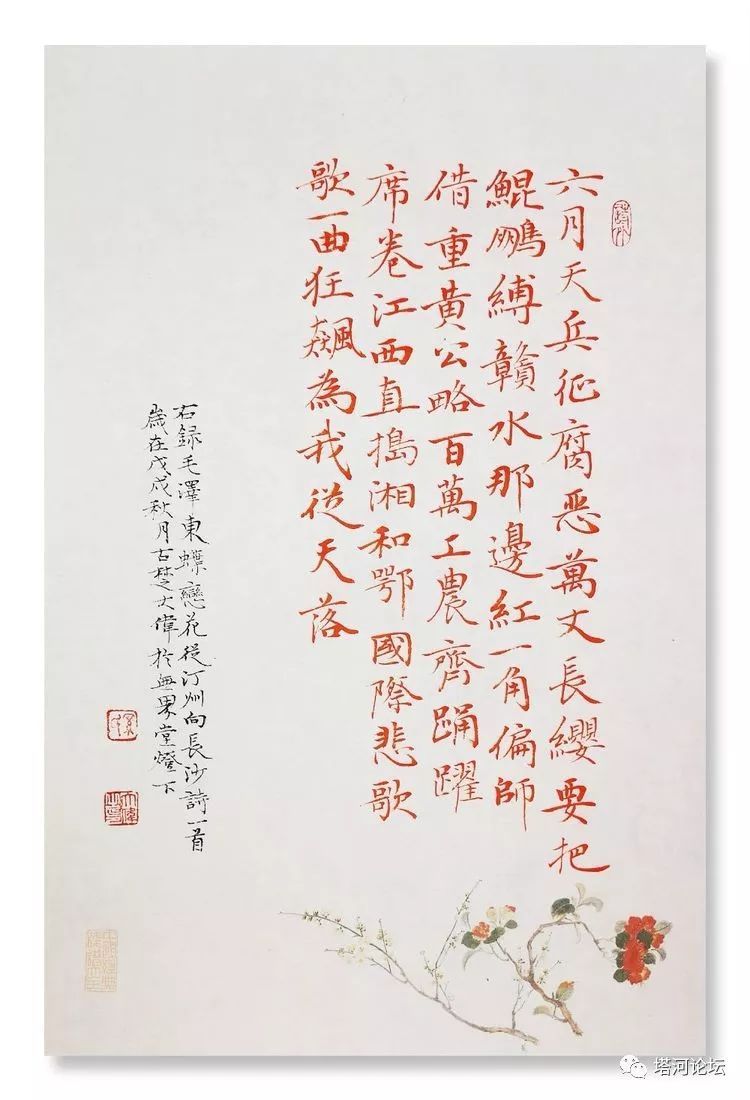 六月天兵征腐恶萬丈長纓要把
鯤鵬縛贛水那邊紅一角偏師
借重黃公略百萬工農齊踊躍
席卷江西直搗湘和鄂國際悲歌
歌一曲狂飆為我從天落
右録毛澤東蝶戀花從汀州向長沙詩一首
歲在戊戌秋月古楚大偉於無果堂燈下
塔河论坛